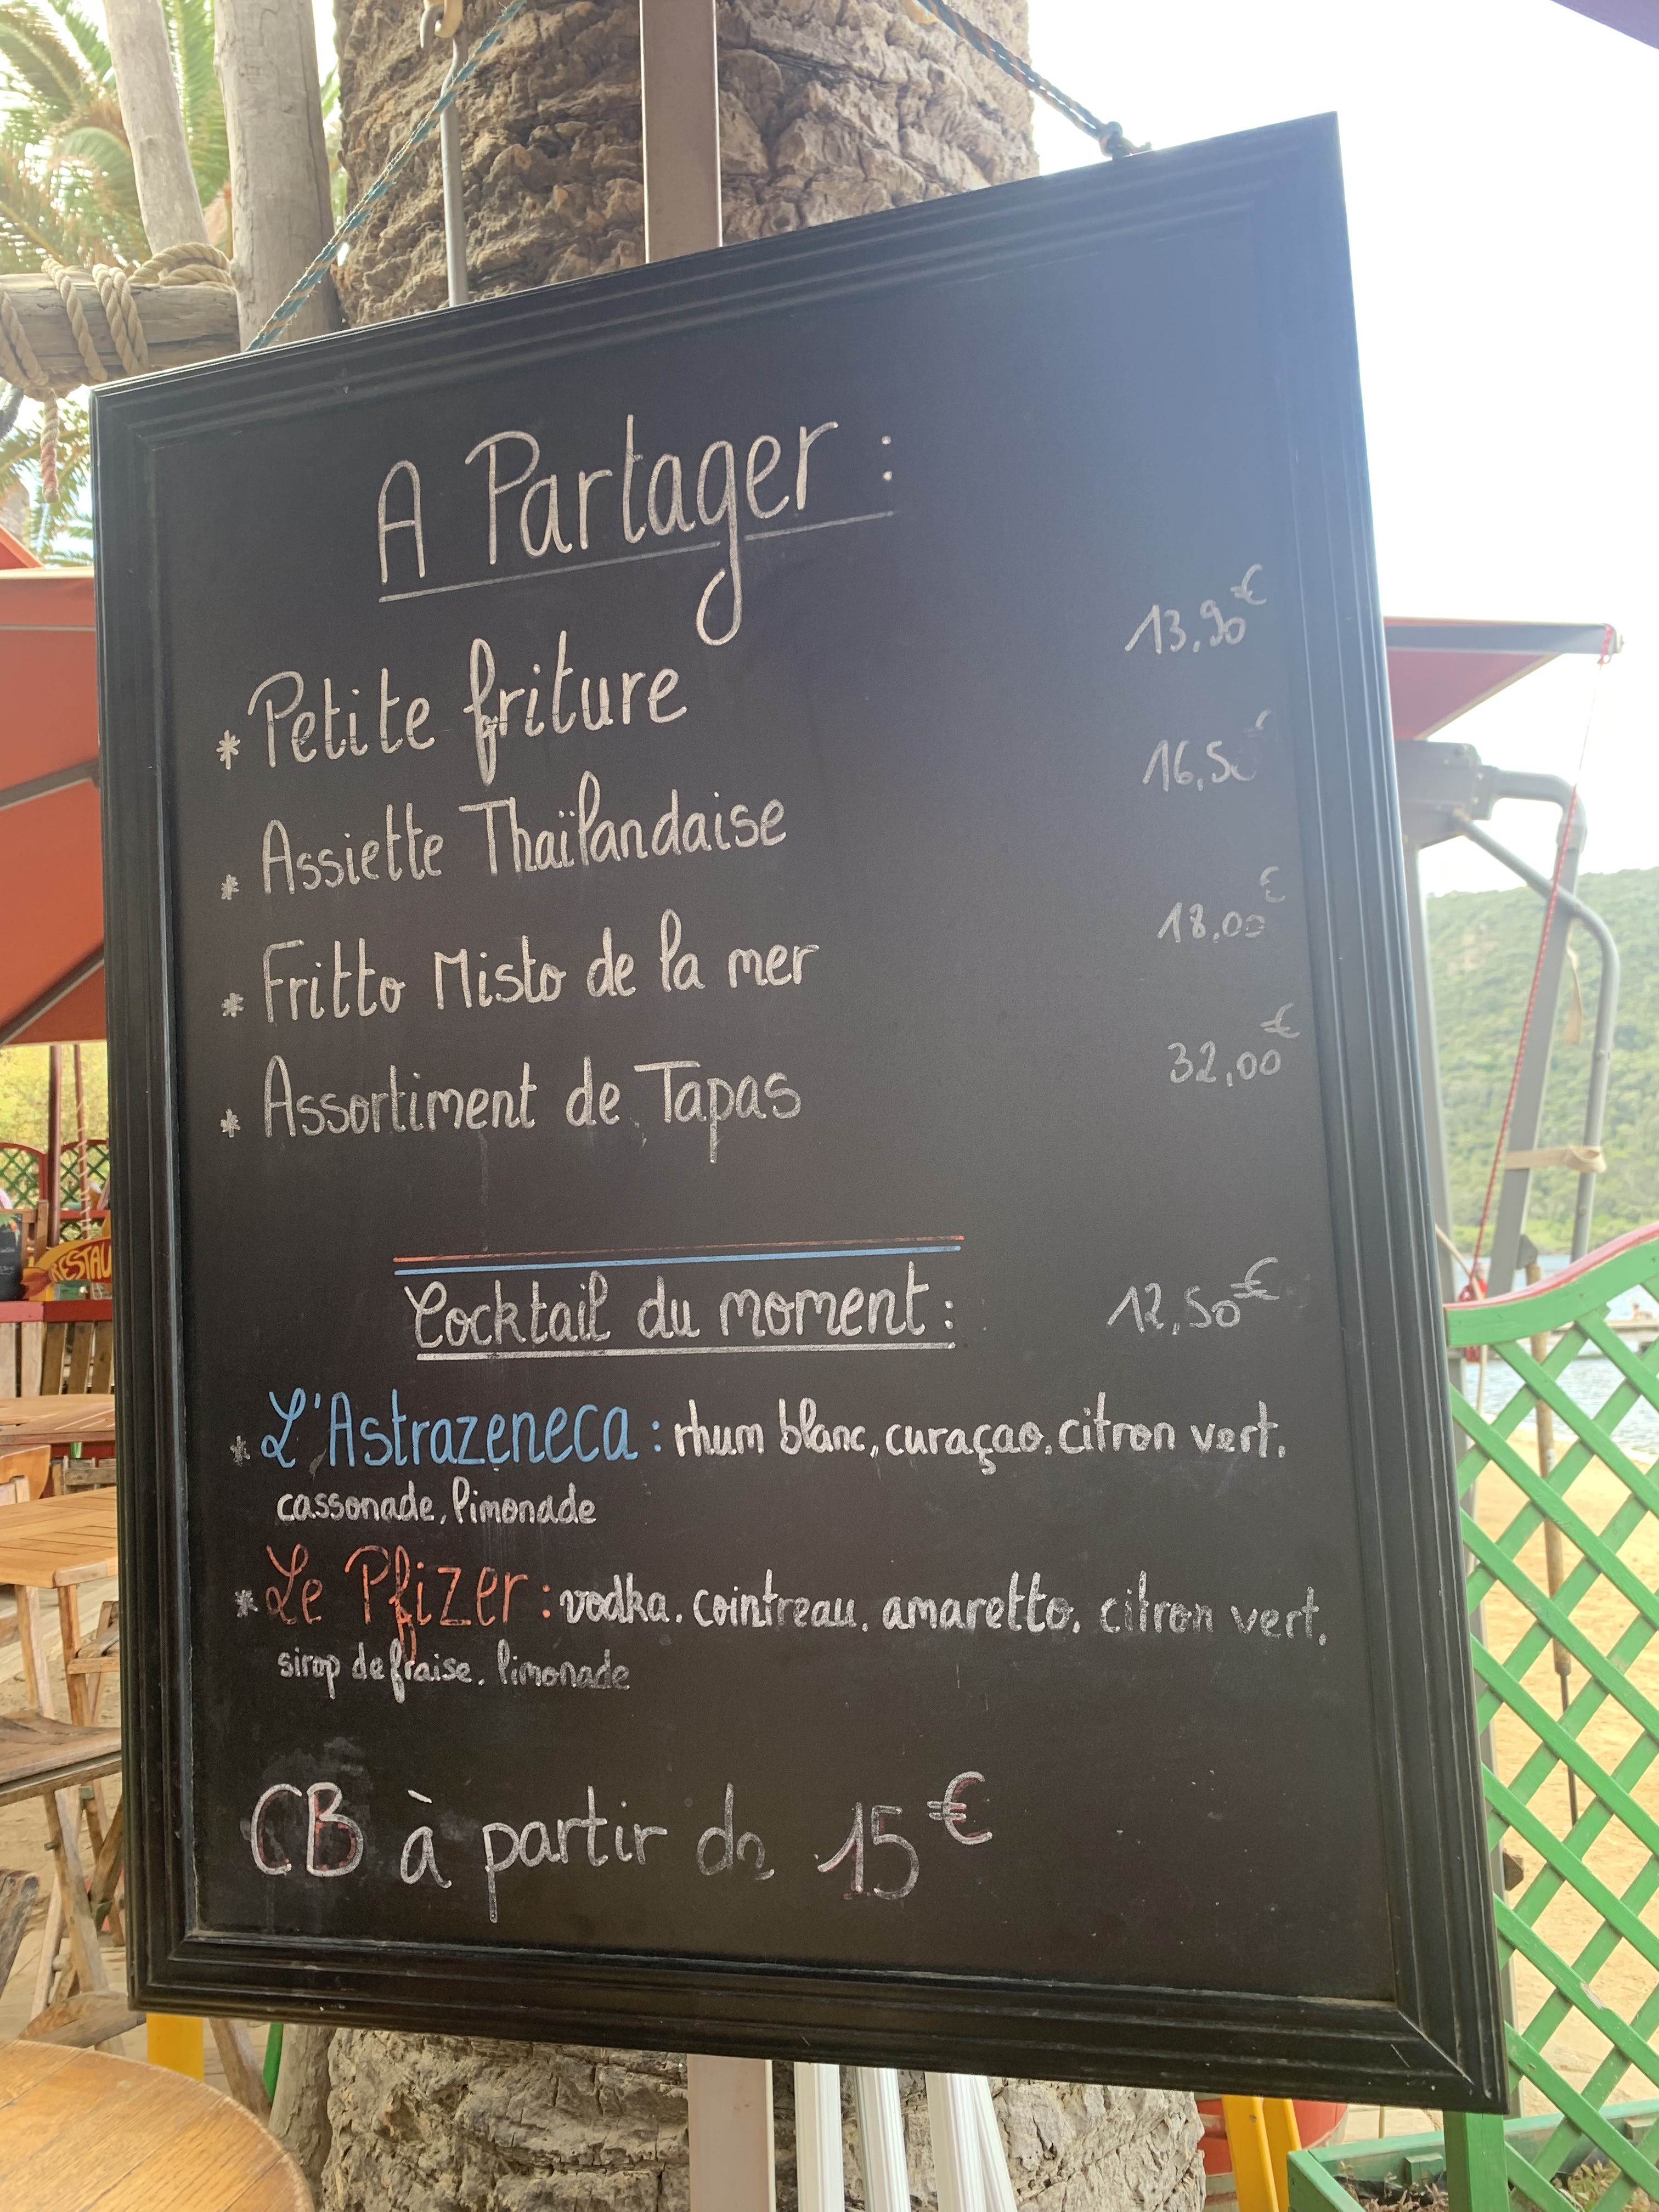 A Partager :
* Petite friture 13,90€
* Assiette Thaïlandaise 16,50€
* Fritto Misto de la mer 18,00€
* Assortiment de Tapas 32,00€
Cocktail du moment : 12,50€
* L'Astrazeneca : rhum blanc, curaçao, citron vert,
cassonade, limonade
* Le Pfizer : vodka, cointreau, amaretto, citron vert,
sirop de fraise, limonade
CB à partir de 15€
RESTAU